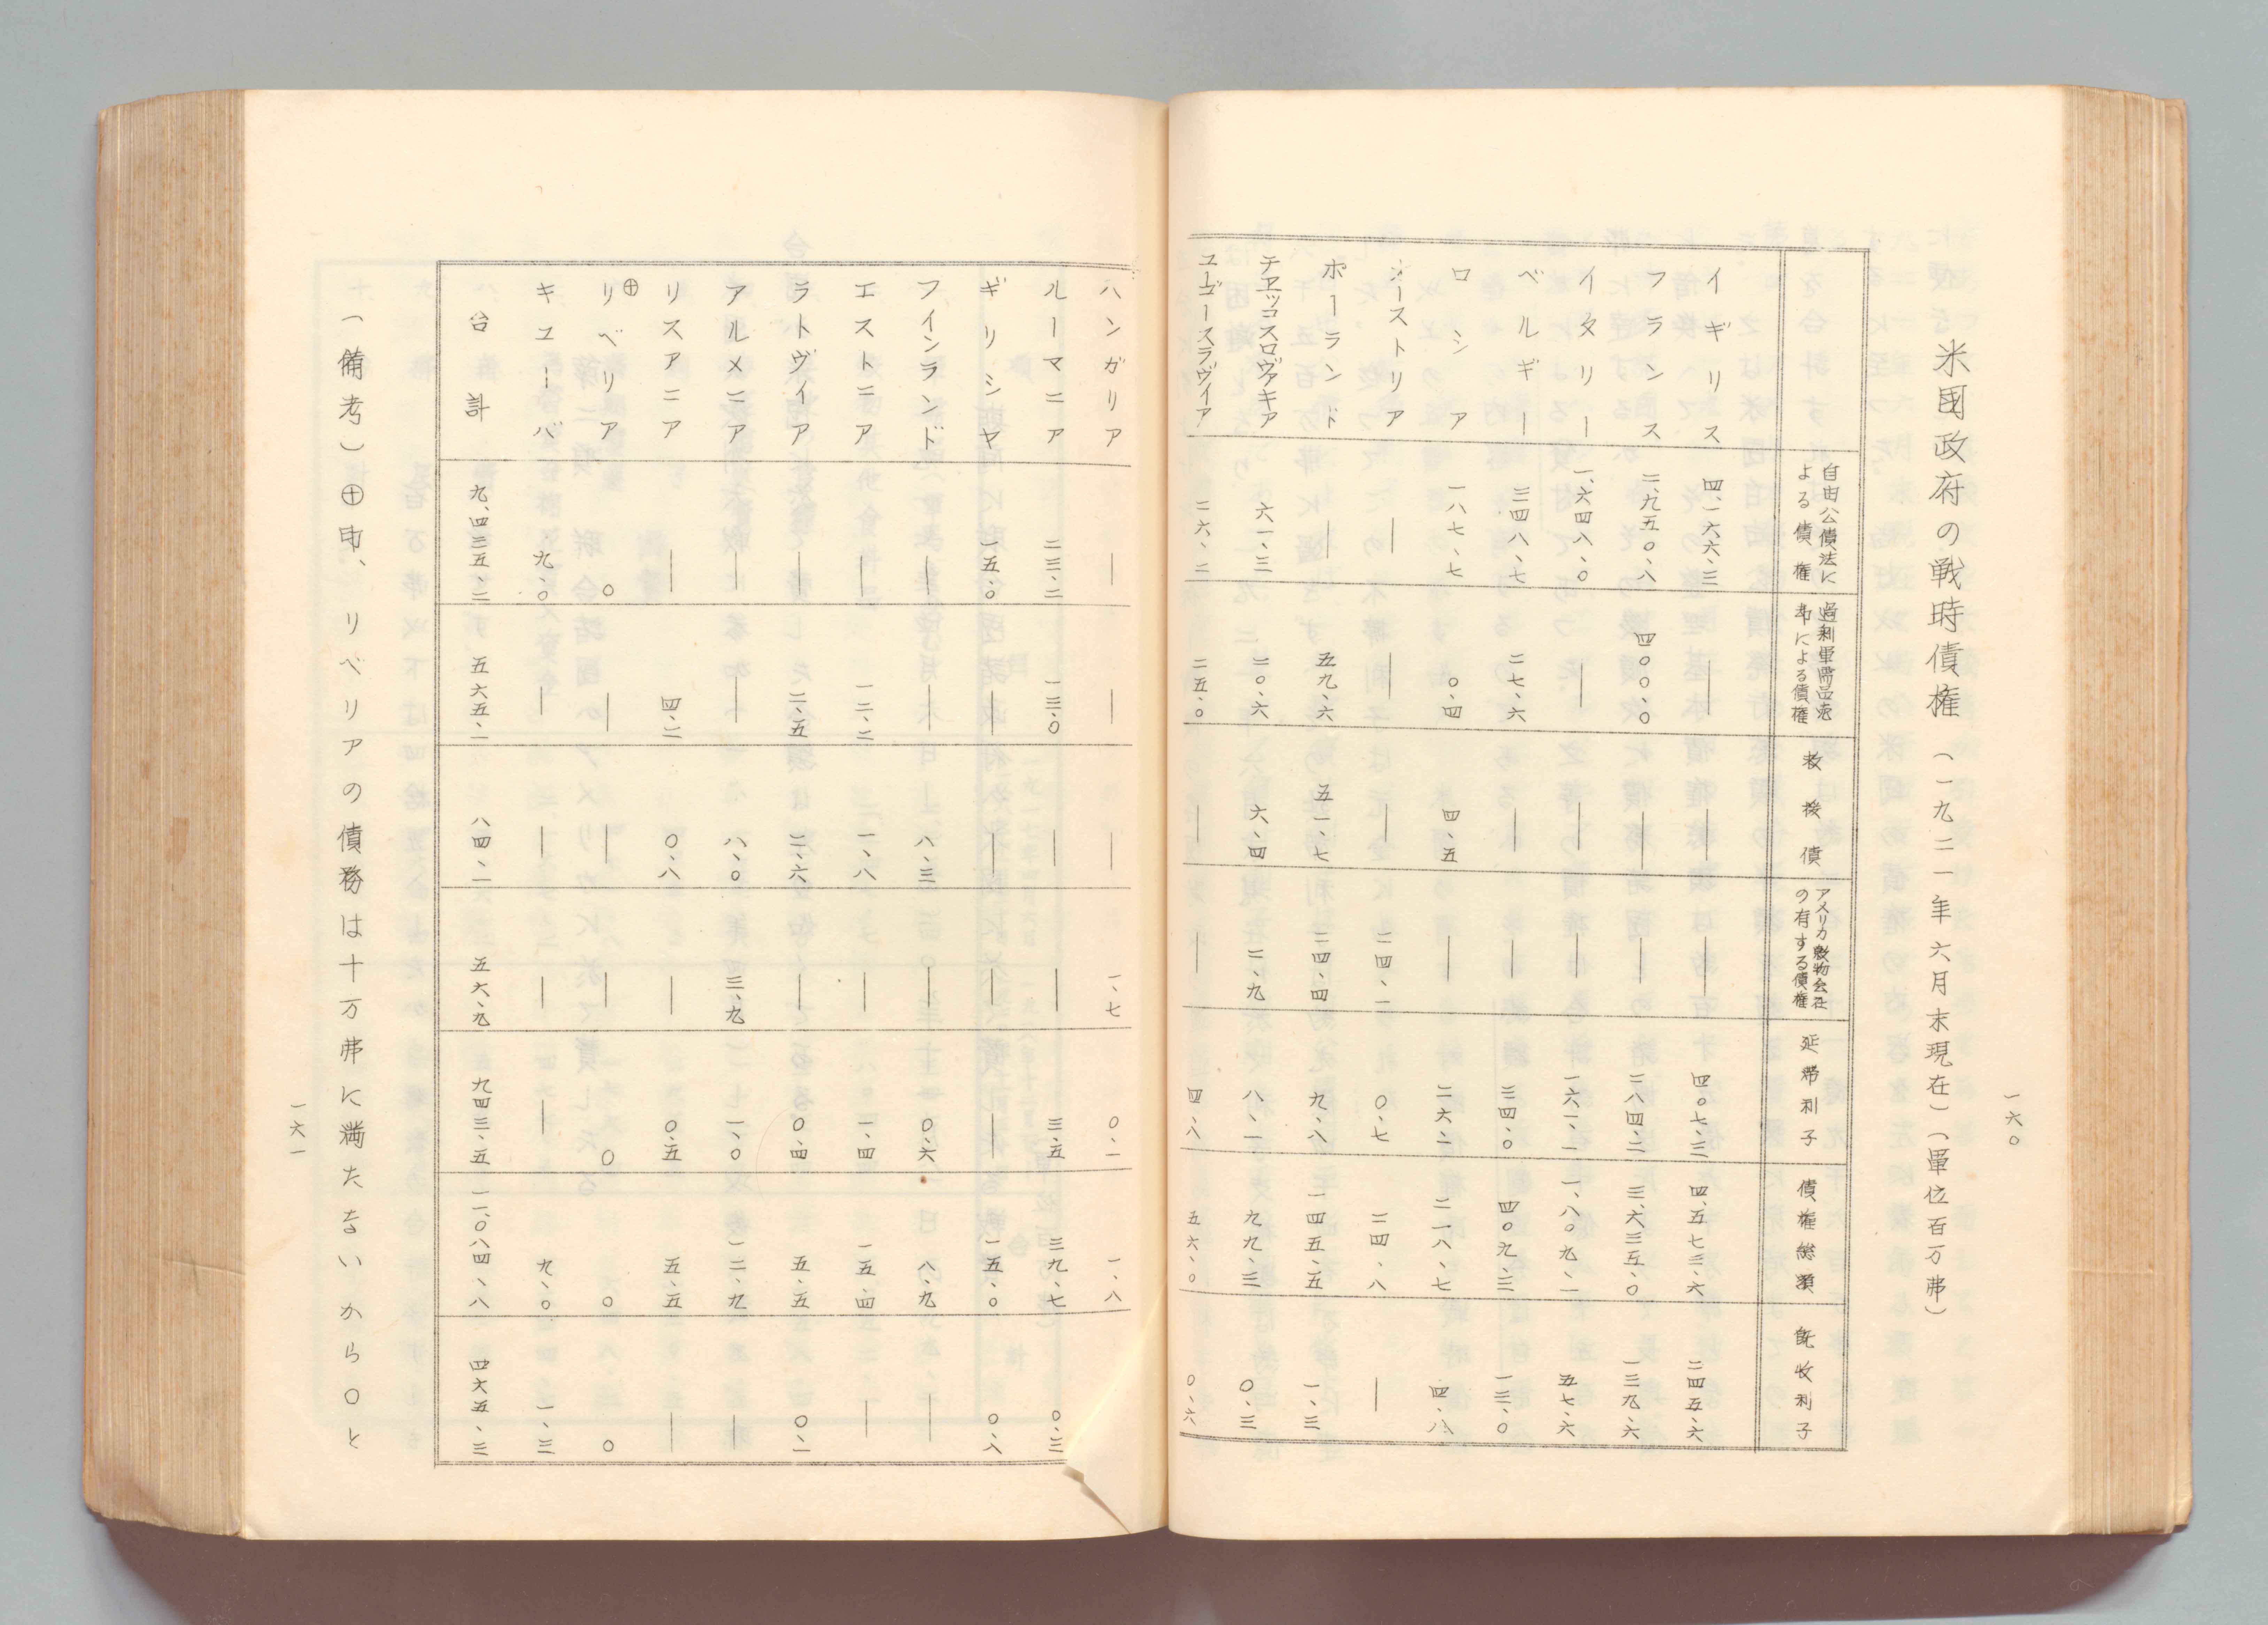 一六〇
米国政府の戦時債権 (一九二一年六月末現在)(単位百万弗)
自由公債法による債権 過剰軍需品売却による債権 救援債 アメリカ穀物会社の有する債権 延滞利子 債権総額 既收利子
イギリス 四、一六六、三 — — — 四〇七、三 四、五七三、六 二四五、六
フランス 二、九五〇、八 四〇〇、〇 — — 二八四、二 三、六三五、〇 一三九、六
イタリー 一、六四八、〇 — — — 一六一、一 一、八〇九、一 五七、六
ベルギー 三四八、七 二七、六 — — 三四、〇 四〇九、三 一三、〇
ロシア 一八七、七 〇、四 四、五 — 二六、一 二一八、七 四、八
オーストリア — — — 二四、一 〇、七 二四、八 —
ポーランド — 五九、六 五一、七 二四、四 九、八 一四五、五 一、三
チエッコスロヴァキア 六一、三 二〇、六 六、四 二、九 八、一 九九、三 〇、三
ユーゴースラヴィア 二六、二 二五、〇 — — 四、八 五六、〇 〇、六
ハンガリア — — — 一、七 〇、一 一、八
ルーマニア 二三、二 一三、〇 — — 三、五 三九、七 〇、三
ギリシヤ 一五、〇 — — — — 一五、〇 〇、八
フインランド — — 八、三 — 〇、六 八、九 —
エストニア — 一二、二 一、八 — 一、四 一五、四 —
ラトヴイア — 二、五 二、六 — 〇、四 五、五 〇、一
アルメニア — — 八、〇 三、九 一、〇 一二、九 —
リスアニア — 四、二 〇、八 — 〇、五 五、五 —
⊕リベリア 〇 — — — 〇 〇 〇
キユーバ 九、〇 — — — — 九、〇 一、三
合計 九、四三五、二 五六五、一 八四、一 五六、九 九四三、五 一一、〇八四、八 四六五、三
(備考)⊕申、リベリアの債務は十万弗に満たないから〇と
一六一